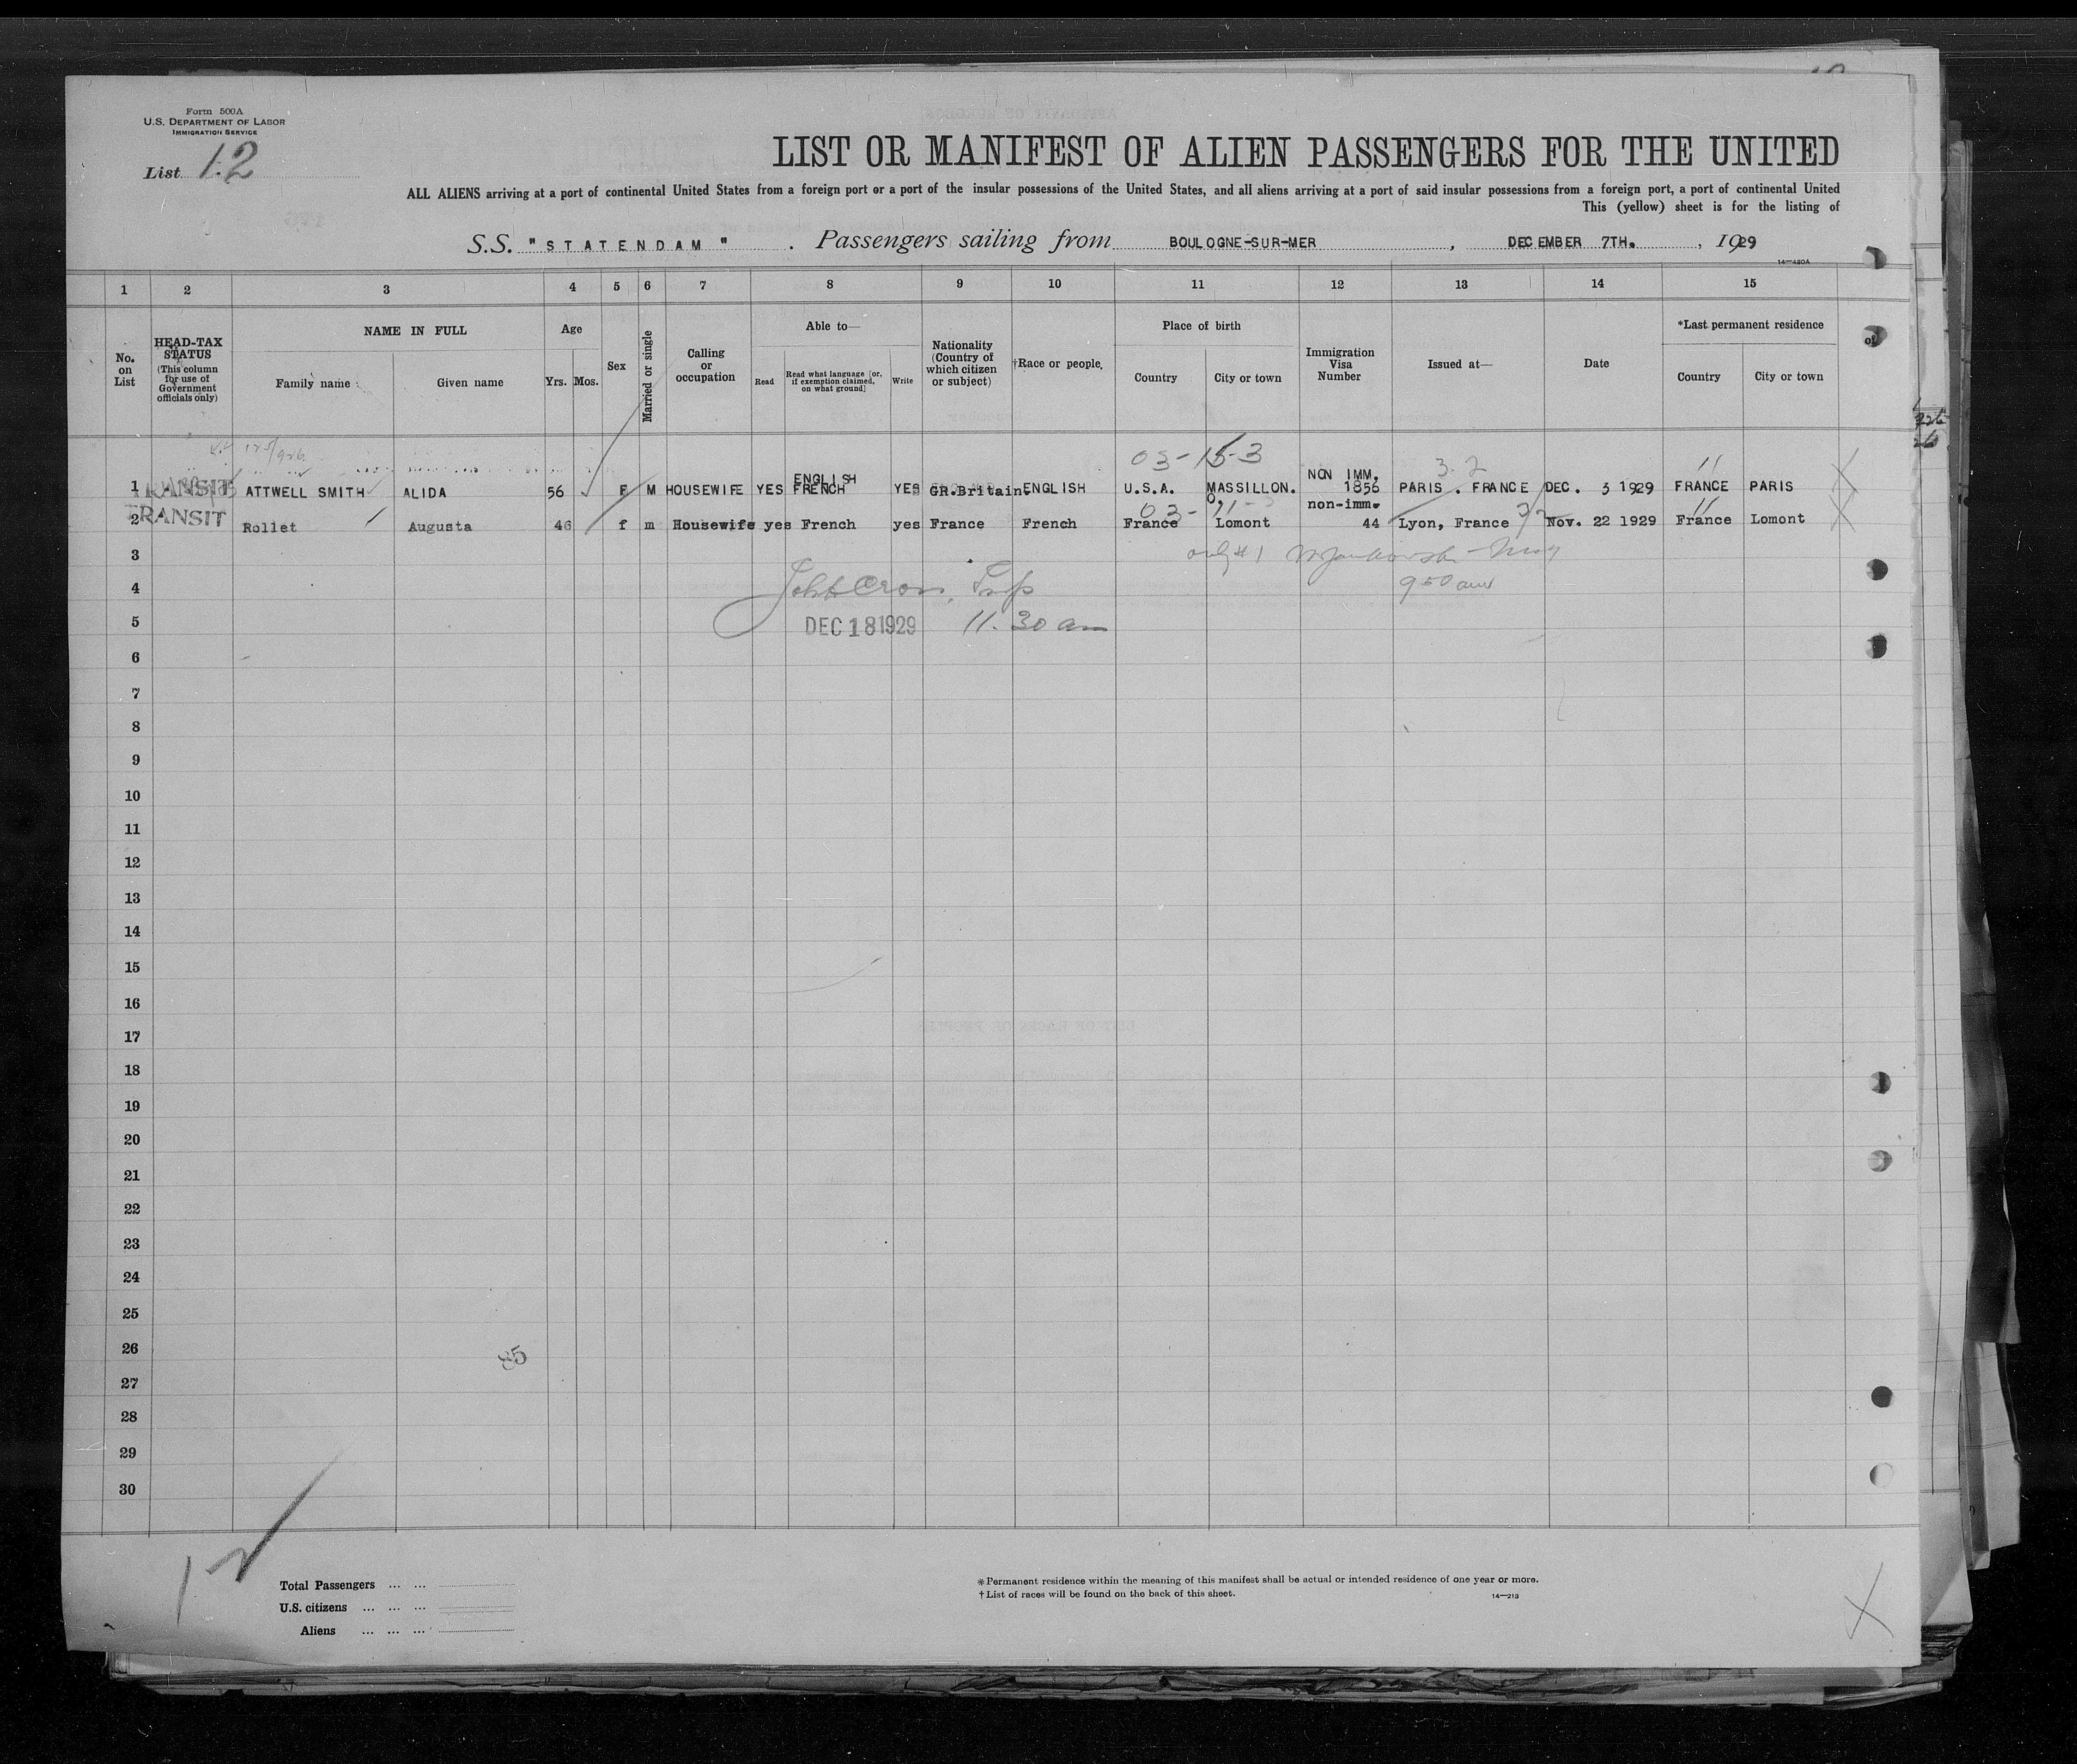 Form 500A
U.S. DEPARTMENT OF LABOR
IMMIGRATION SERVICE
List 12
LIST OR MANIFEST OF ALIEN PASSENGERS FOR THE UNITED
ALL ALIENS arriving at a port of continental United States from a foreign port or a port of the insular possessions of the United States, and all aliens arriving at a port of said insular possessions from a foreign port, a port of continental United
This (yellow) sheet is for the listing of
S.S. "STATENDAM". Passengers sailing from BOULOGNE-SUR-MER, DECEMBER 7TH., 1929
14—420A
1 2 3 4 5 6 7 8 9 10 11 12 13 14 15
No. on List
HEAD-TAX STATUS (This column for use of Government officials only)
NAME IN FULL
Family name Given name
Age
Yrs. Mos.
Sex
Married or single
Calling or occupation
Able to—
Read Read what language [or, if exemption claimed, on what ground] Write
Nationality (Country of which citizen or subject)
†Race or people
Place of birth
Country City or town
Immigration Visa Number
Issued at—
Date
*Last permanent residence
Country City or town
03-15-3 3.2 11
1 TRANSIT ATTWELL SMITH ALIDA 56 F M HOUSEWIFE YES ENGLISH FRENCH YES GR.Britain. ENGLISH U.S.A. MASSILLON. O, NON IMM. 1856 PARIS. FRANCE DEC. 3 1929 FRANCE PARIS
03- 11
2 TRANSIT Rollet Augusta 46 f m Housewife yes French yes France French France Lomont non-imm. 44 Lyon, France Nov. 22 1929 France Lomont
3
only #1
4
950 am
5
DEC 18 1929 11.30 am
6
7
8
9
10
11
12
13
14
15
16
17
18
19
20
21
22
23
24
25
26
85
27
28
29
30
Total Passengers ... ...
U.S. citizens ... ... ...
Aliens ... ... ...
*Permanent residence within the meaning of this manifest shall be actual or intended residence of one year or more.
†List of races will be found on the back of this sheet.
14—213